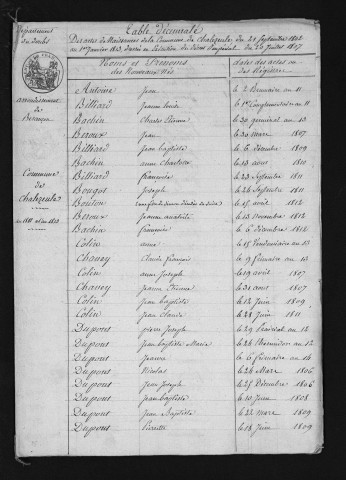 Département
du Doubs
Table décennale
Des actes de Naissances de la Commune de Chalezeule du 21 Septembre 1802
au 1er Janvier 1813, dressée en Exécution du Décret Impérial du 20 Juillet 1807
Noms et Prénoms
des Nouveaux Nés
dates des actes ou
des Régistres
arrondissement
de Besançon
Commune
de
Chalezeule
an 1811 et an 1813
Antoine Jean le 2 Brumaire an 11
Billiard Jeanne
Bachin Charles Etienne le 30 germinal an 13
Beroux Jean le 30 mars 1807
Billiard Jean baptiste le 6 Décembre 1809
Bachin anne Charlotte le 13 aout 1810
Billiard françoise le 23 Septembre 1811
Bougot Joseph le 26 Septembre 1811
Bouton le 15 avril 1812
Beroux Jeanne le 13 Novembre 1812
Bachin françoise le 6 décembre 1812
Colin anne le 15 Vendemiaire an 13
Chaney Claude françois le 9 frimaire an 13
Colin anne Joseph le 19 avril 1807
Chaney Jeanne Etienne le 31 aout 1807
Colin Jean baptiste le 12 Juin 1809
Colin Jean Claude le 28 Juin 1811
Dupont pierre Joseph le 29 prairial an 11
Dupont Jean baptiste Marie le 26 Brumaire an 12
Dupont Jeanne le 6 frimaire an 14
Dupont Nicolas le 24 Mars 1806
Dupont Jean Joseph le 25 Décembre 1806
Dupont Jean baptiste le 10 Juin 1808
Dupont Jean Baptiste le 22 mars 1809
Dupont Pierrette le 18 Juin 1809